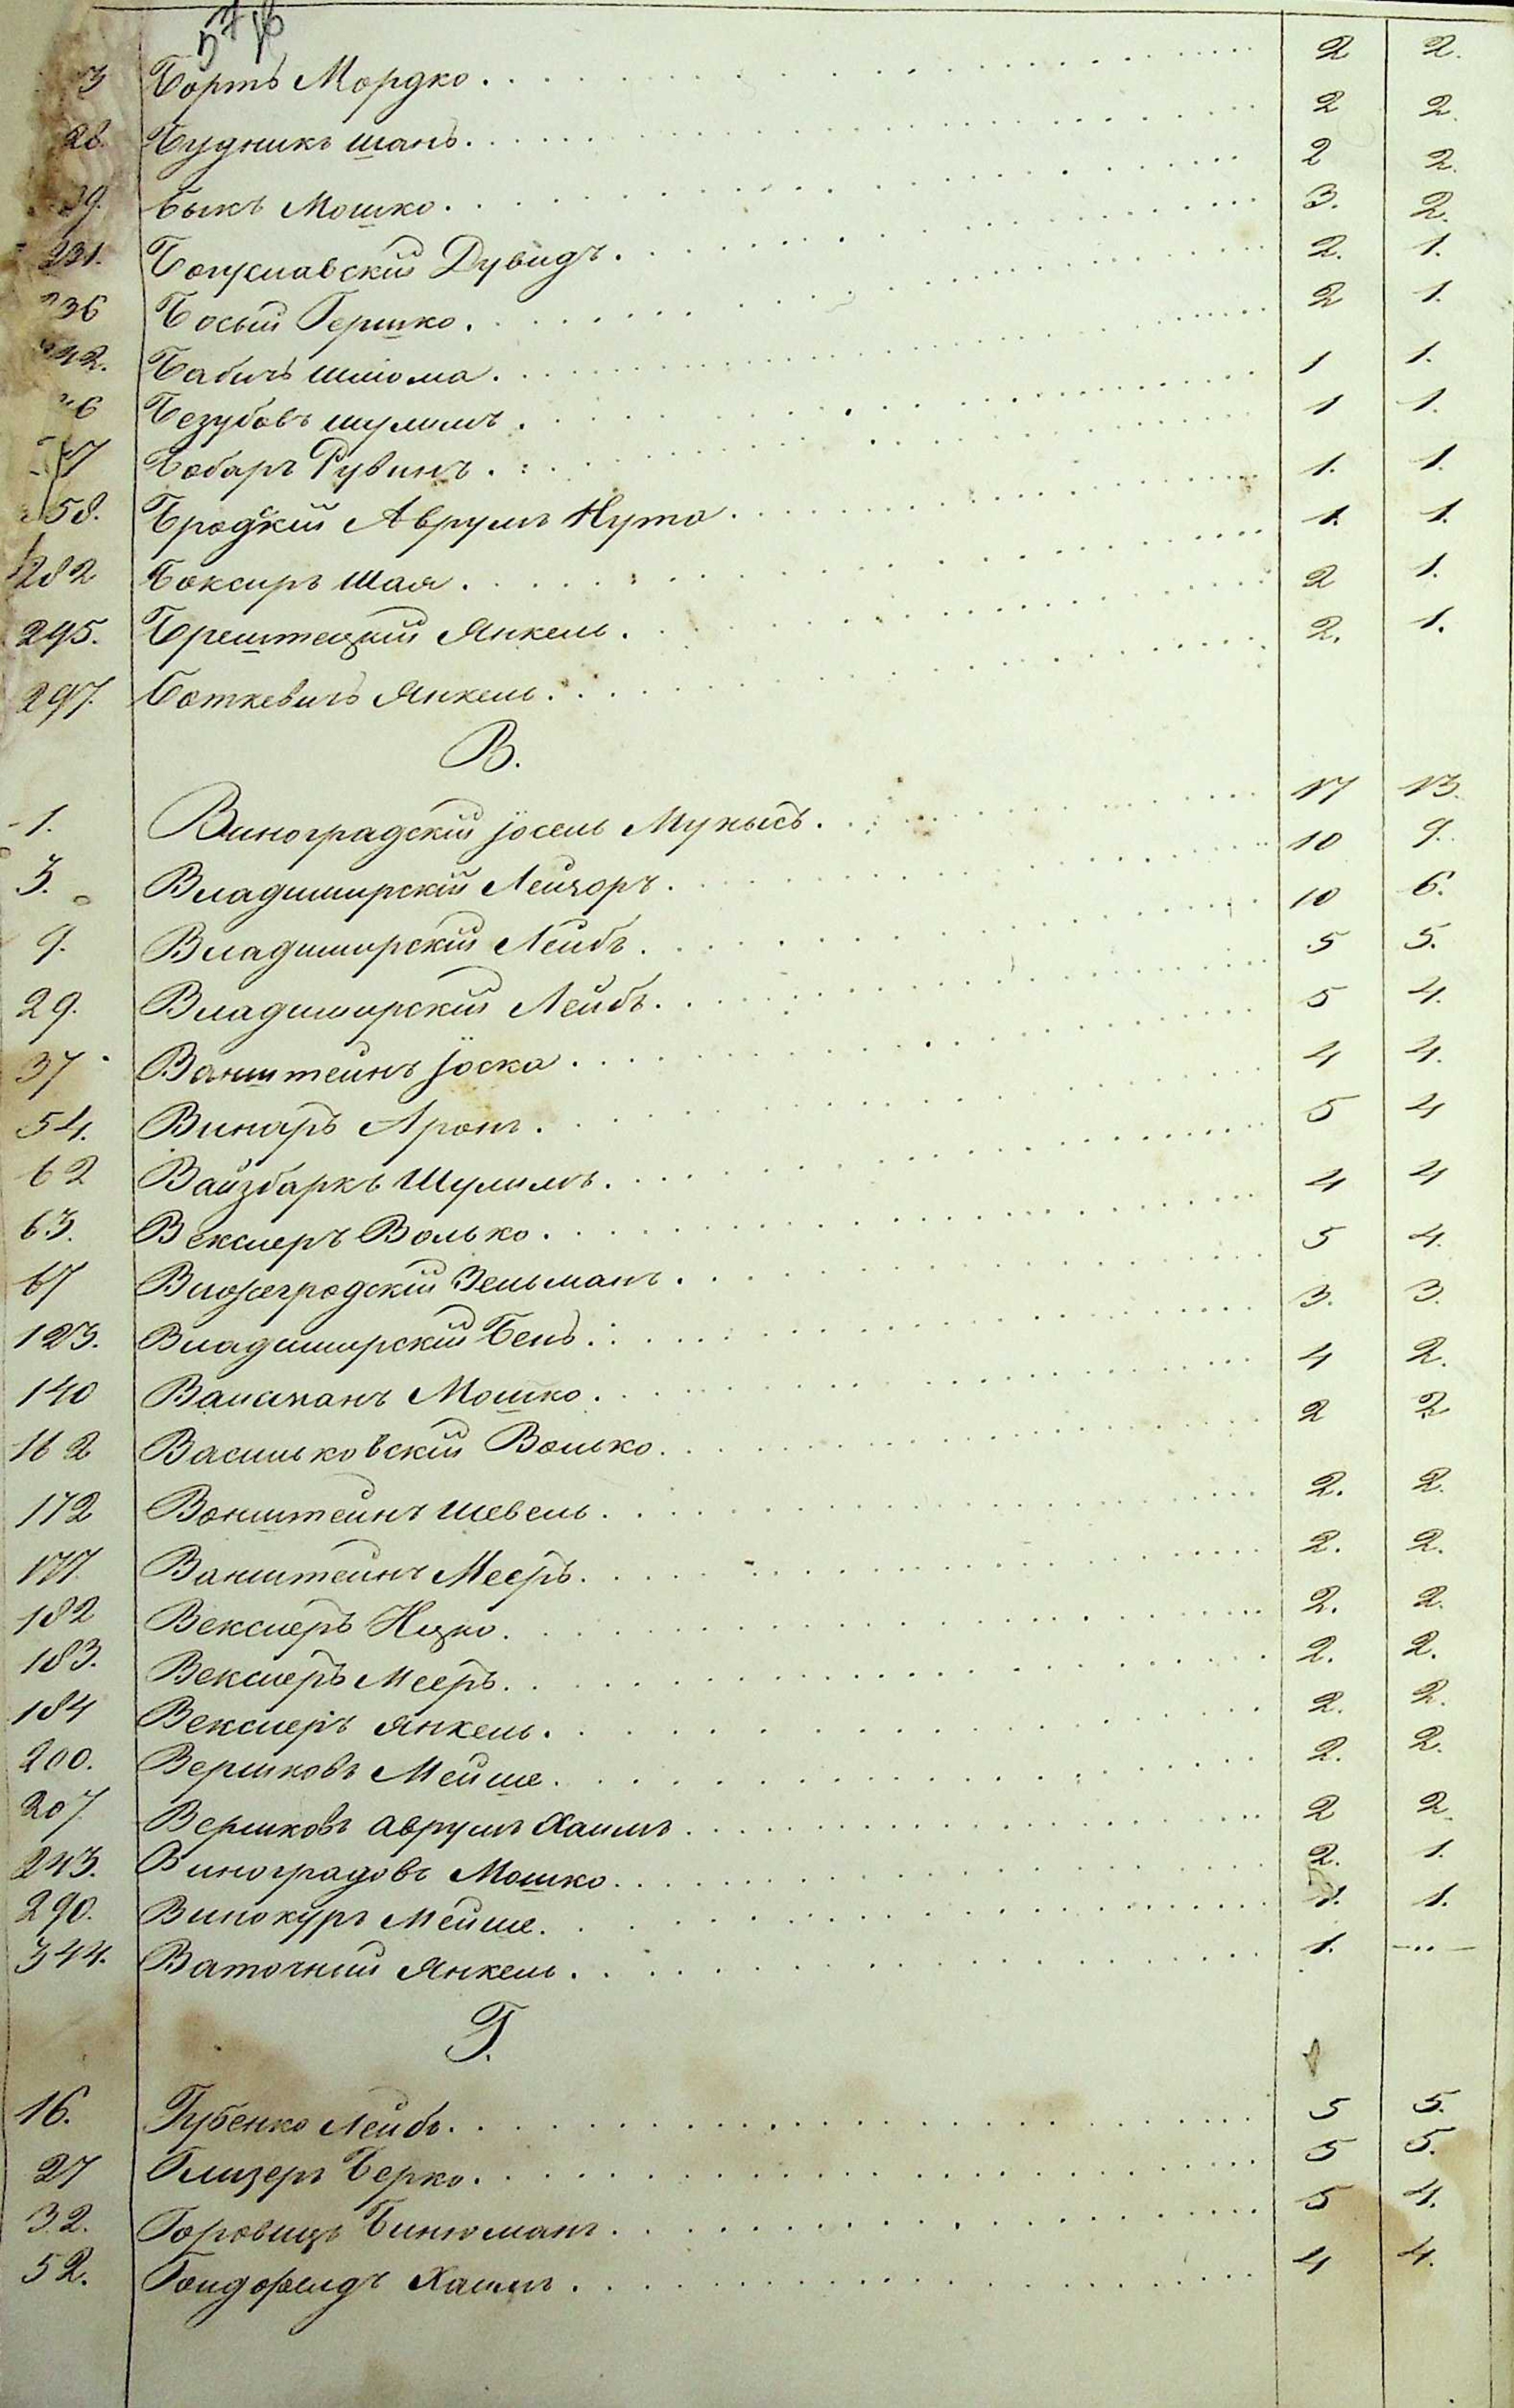 3 Бортъ Мордко. 2 2.
28. Будникъ Шапъ. 2 2.
9. Быкъ Мошко. 2 2.
231. Богуславскій Дувидъ. 3. 2.
236 Босый Гершко. 2. 1.
242. Бабичъ Шліома. 2 1.
6 Безубовъ Шулимъ. 1 1.
7 Бобаръ Рувинъ. 1 1.
258. Бродскій Аврумъ Нута. 1. 1.
282 Боксиръ Шая. 1. 1.
295. Брештецкій Янкель. 2 1.
297. Боткевичъ Янкель. 2. 1.
В.
1. Виноградскій Іосель Мунысъ. 17 13.
3. Владимирскій Лейзоръ. 10 9.
9. Владимирскій Лейбъ. 10 6.
29. Владимирскій Лейбъ. 5 5.
37 Ванштейнъ Іоска. 5 4.
54. Винаръ Аронъ. 4 4.
62 Вайзбаркъ Шулимъ. 5 4
63. Векслеръ Волько. 4 4
67 Вножегродскій Зельманъ. 5 4.
123. Владимирскій Бенъ. 3. 3.
140 Вайсманъ Мошко. 4 2.
162 Васильковскій Волько. 2 2
172 Вонштейнъ Шевель. 2. 2.
177 Ванштейнъ Мееръ. 2. 2.
182 Векслеръ Ицко. 2. 2.
183. Векслеръ Мееръ. 2. 2.
184 Векслеръ Янкель. 2. 2.
200. Вершковъ Мейше. 2. 2.
207 Вершковъ Аврумъ Хаимъ. 2 2.
243. Виноградовъ Мошко. 2. 1.
290. Винокуръ Мейше. 1. 1.
344. Ваточный Янкель. 1. —
Г.
16. Губенко Лейбъ. 5 5.
27 Глизеръ Берко. 5 5.
32. Горовицъ Бинюманъ. 5 4.
52. Голдфелдъ Хаимъ. 4 4.